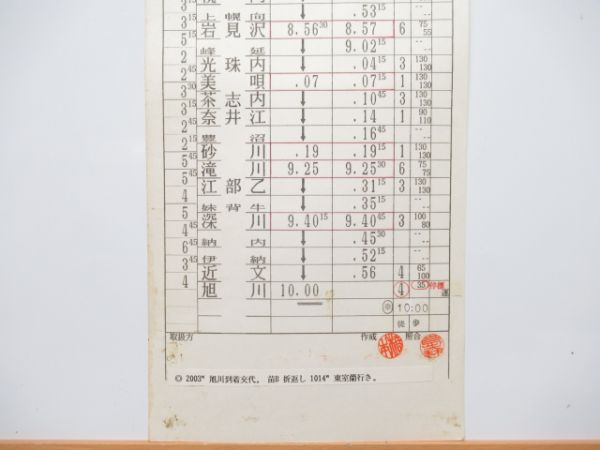 3 上 幌 向 .53 15
3 15 岩 見 沢 8.56 30 8.57 6 75 55
5 峰 延 9.02 15
2 光 珠 内 .04 15 3 130 130
2 45 美 唄 .07 .07 15 1 130 130
3 30 茶 志 内 .10 45 3 130 130
3 15 奈 井 江 .14 1 90 110
2 45 豊 沼 .16 45
2 15 砂 川 .19 .19 15 1 130 130
5 45 滝 川 9.25 9.25 30 6 75 75
5 45 江 部 乙 .31 15 3 130 130
4 妹 背 牛 .35 15
5 深 川 9.40 15 9.40 45 3 100 80
4 45 納 内 .45 30
6 45 伊 納 .52 15
3 45 近 文 .56 4 65 100
4 旭 川 10.00 4 35 停標
10:00 着
後 参
取扱方 作成 照合
◎ 2003" 旭川到着交代。 苗B 折返し 1014" 東室蘭行き。